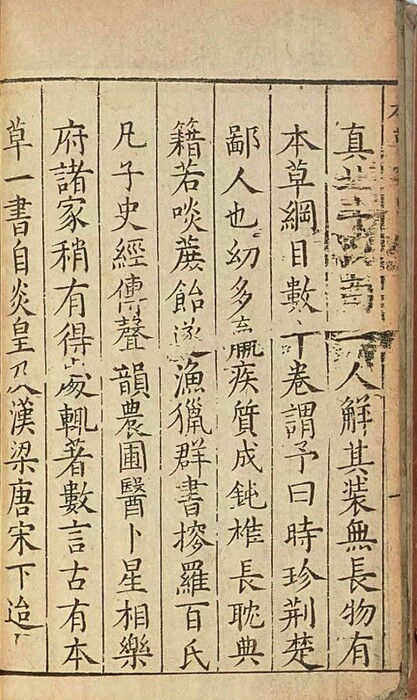 真一人解其裝無長物有
本草綱目數十卷謂予曰時珍荆楚
鄙人也幼多羸疾質成鈍椎長耽典
籍若啖蔗飴遂漁獵群書搜羅百氏
凡子史經傳聲韻農圃醫卜星相樂
府諸家稍有得處輒著數言古有本
草一書自炎皇及漢梁唐宋下迨